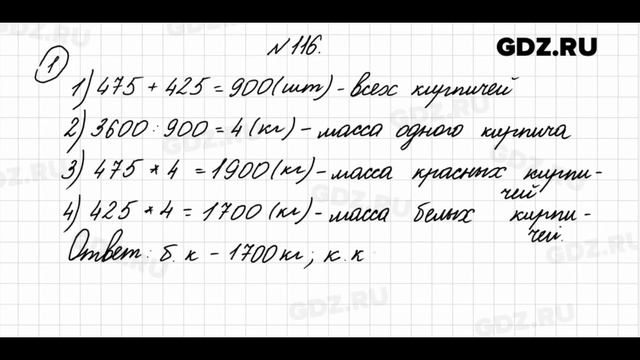 №116.
GDZ.RU
1
1) 475 + 425 = 900 (шт) - всех кирпичей
2) 3600 : 900 = 4 (кг) - масса одного кирпича
3) 475 * 4 = 1900 (кг) - масса красных кирпи-
чей
4) 425 * 4 = 1700 (кг) - масса белых кирпи-
чей.
Ответ: б. к - 1700 кг; к. к
GDZ.RU
GDZ.RU
GDZ.RU
GDZ.RU